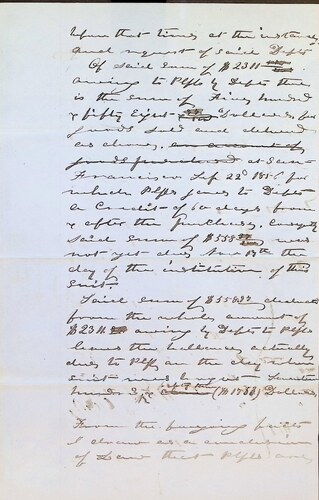 upon that time at the instance
and request of said Defts
Of said sum of $2311
owing to Plffs by Defts there
is the sum of Five hundred
& fifty Eight Dollars, for
goods sold and delivered
as above, at San
Francisco Sep 22d 1856 for
which Plffs gave to Defts
a Credit of 60 days from
& after the purchase,
said sum of $558 was
not yet due Nov the
day of the institution of this
suit.
Said sum of $558 deducted
from the whole amount of
$2311 owing by Defts to Plffs
leaves the balance actually
due to Plffs on the day when
suit was begun Seventeen
hund & ($1753) Dollars.
From the foregoing facts
I draw as a conclusion
of Law that Plffs